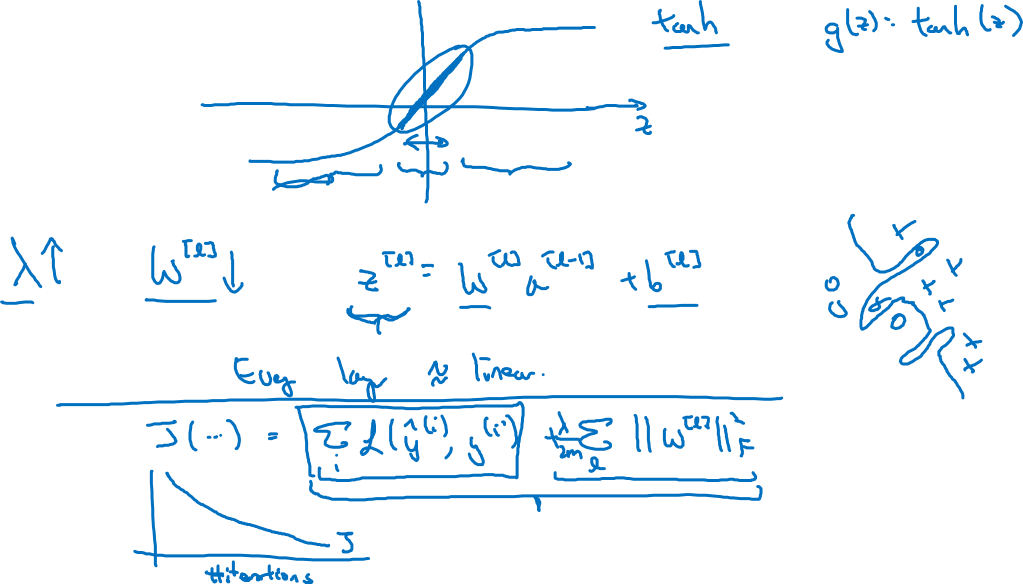 tanh
g(z) = tanh(z)
z
λ↑ W^[l]↓ z^[l] = W^[l] a^[l-1] + b^[l]
Every layer ≈ linear.
J(...) = Σ_i L(ŷ^(i), y^(i)) + λ/2m Σ_l ||W^[l]||²_F
J
#iterations